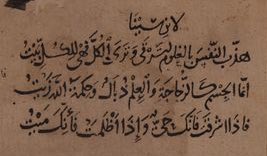 لابن سينا
هذب النفس بالعلوم لترقى وترى الكل فهي للكل بيت
انما الجسم كالزجاجة والعلم ذبال وحكمة الله زيت
فاذا اشرقت فانك حي واذا اظلمت فانك ميت